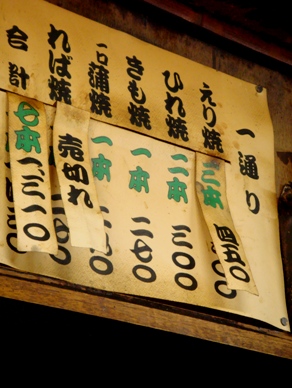 一通り
えり焼 二本 四五〇
ひれ焼 二本 三〇〇
きも焼 一本 二七〇
一口蒲焼 一本
れば焼 売切れ
合計 七本 一、三一〇